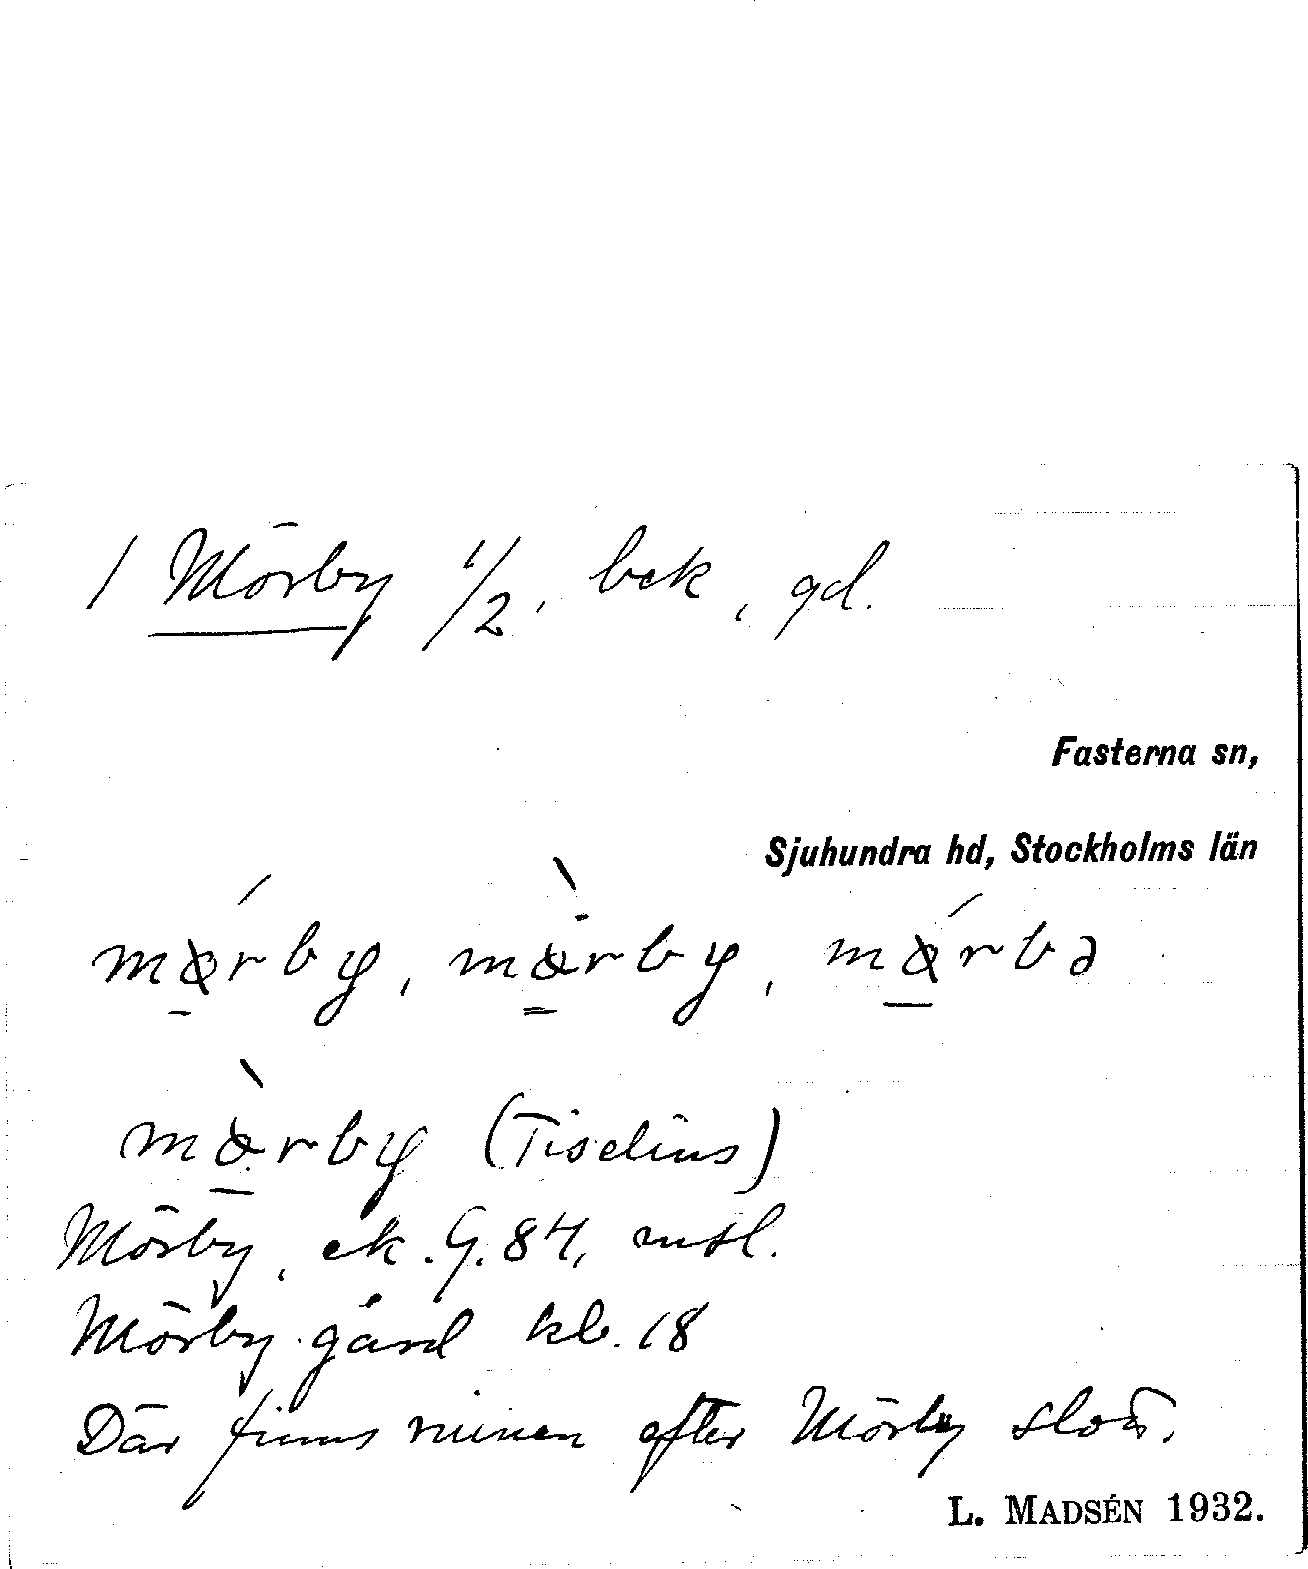 1 Mörby 1/2, bek, gd.
Fasterna sn,
Sjuhundra hd, Stockholms län
mǿrby, mø̀rby, mǿrbə
mø̀rby (Tiselius)
Mörby, ek. G. 84, mtl.
Mörby gård kb. 18
Där finns ruinen efter Mörby slott.
L. MADSÉN 1932.